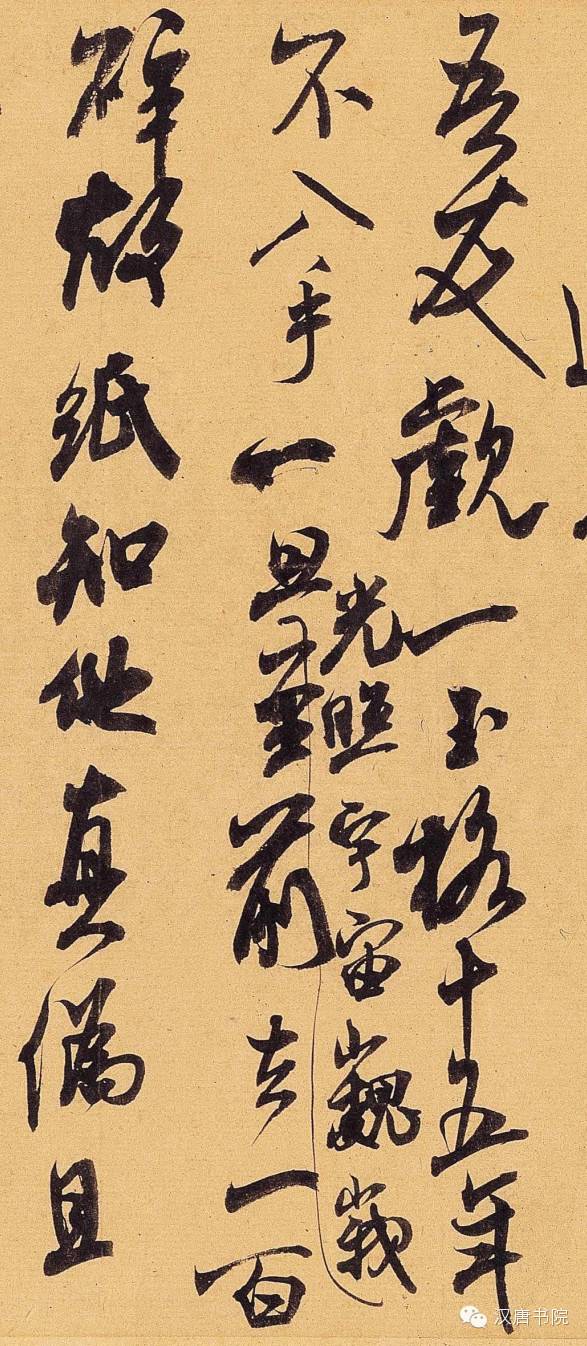 吾友覷一玉格十五年
光照宇宙巍峩
不入手一旦至前去一百
碎故紙知他真偽且
汉唐书院